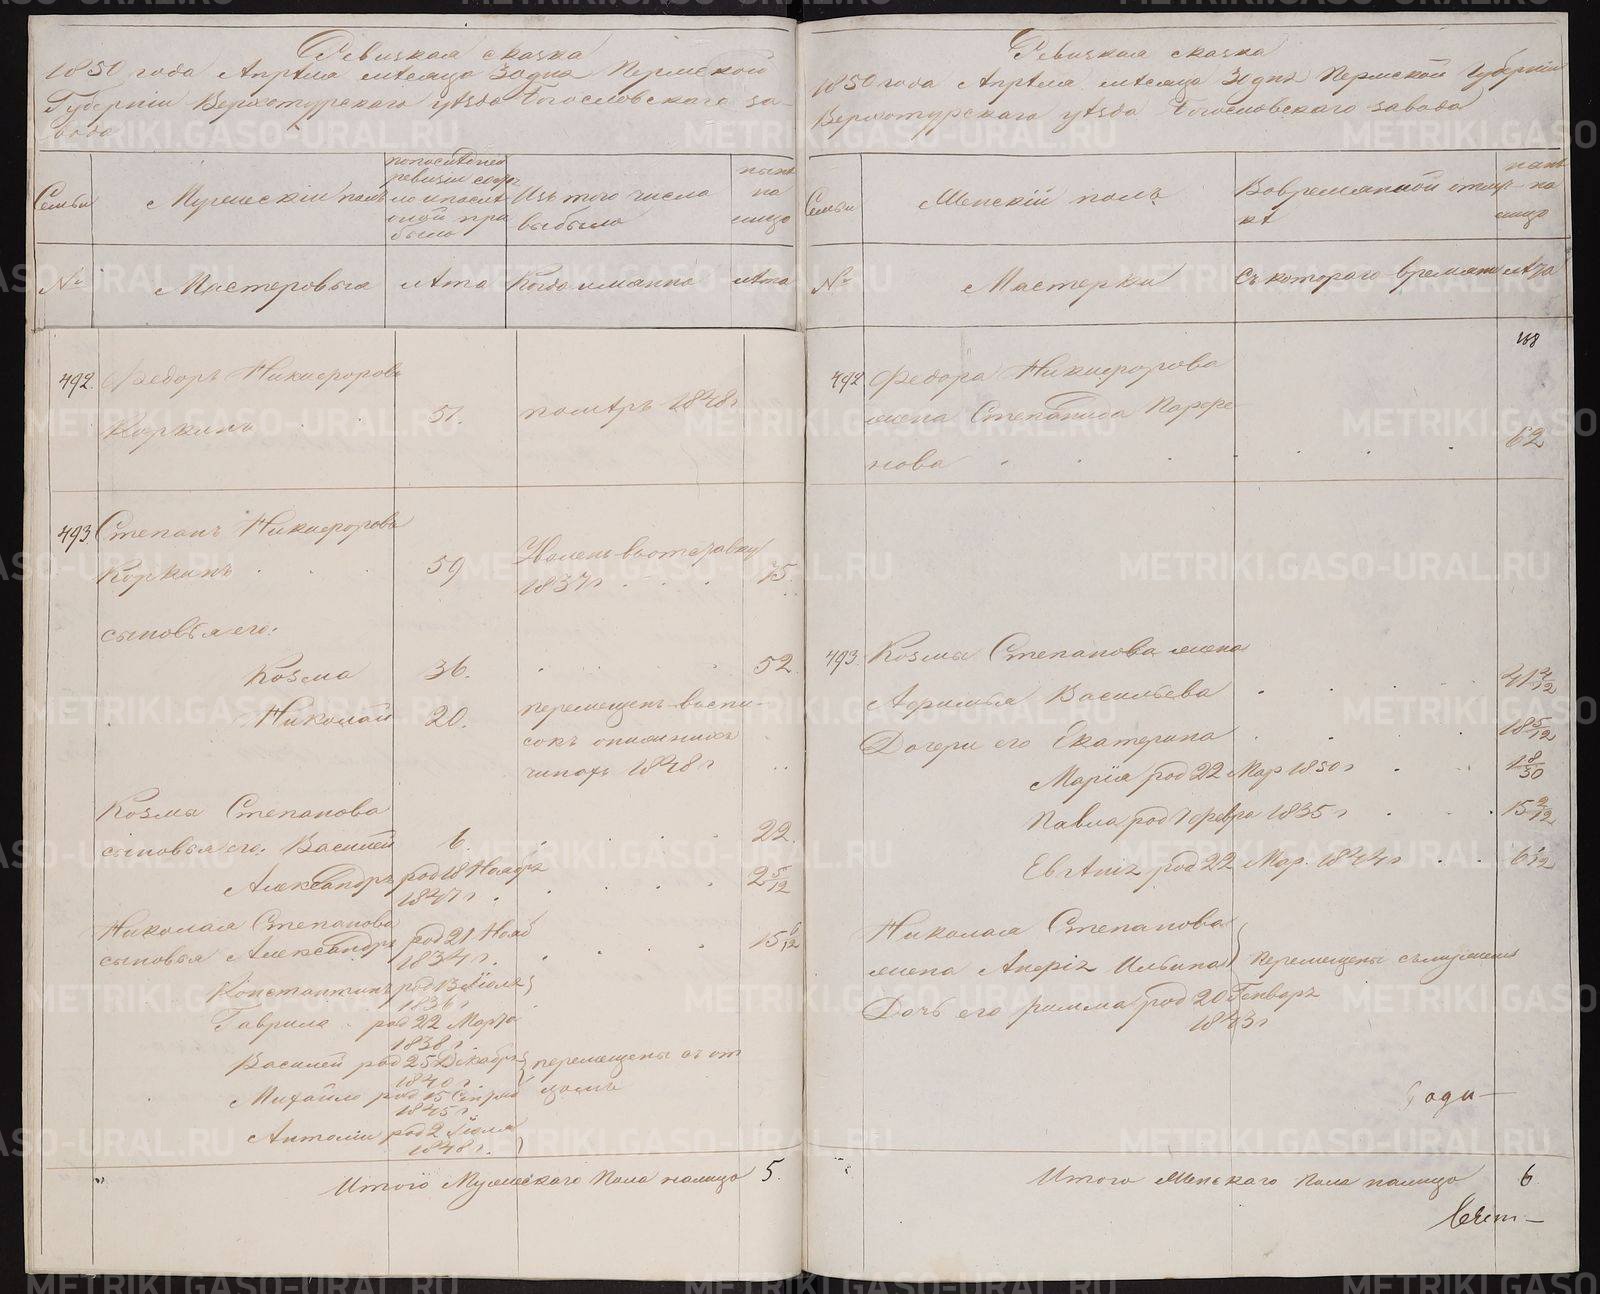 Ревизкая сказка
1850 года Апрѣля мѣсяца 30 дня Пермской
Губерніи Верхотурскаго уѣзда Богословскаго за-
вода
Семьи
Мужескій полъ
по последней
ревизіи состо-
яло и послѣ
оной при
было
Изъ того числа
выбыло
нынѣ
на
лицо
№
Мастеровыя
лѣта
Когда именно
лѣта
492.
Федоръ Никифоровъ
Коркинъ
51.
помѣръ 1848 г
493.
Степанъ Никифоровъ
Коркинъ
59
Уволенъ в отставку
1837 г
75.
сыновья его:
Козма
36.
52
Николай
20.
перемещенъ в спи-
сокъ о нижнихъ
чинахъ 1848 г
Козмы Степанова
сыновья его: Василей
6.
22.
Александръ род 18 Ноября
1847 г.
2 5/12
Николая Степанова
сыновья Александръ род 21 Нояб
1834 г.
15 6/12
Константинъ род 13 Іюля
1836 г
Гаврила род 22 Марта
1838 г.
Василей род 25 Декабря
1840 г.
перемещены съ от
цомъ
Михайло род 15 Сентяб
1845 г.
Антоній род 2 Іюля
1848 г.
Итого Мужескаго Пола налицо
5.
Ревизкая сказка
1850 года Апрѣля мѣсяца 30 дня Пермской Губерніи
Верхотурскаго уѣзда Богословскаго завода
Семьи
Женскій полъ
Во временной отлуч-
кѣ
нынѣ
на
лицо
№
Мастерки
Съ котораго времяни
лѣта
168
492
Федора Никифорова
жена Степанида Парфе-
нова
62
493.
Козмы Степанова жена
Афимья Васильева
41 2/12
Дочери его Екатерина
18 5/12
Марія род 22 Мар 1850 г
1 8/30
Павла род 7 февра 1835 г
15 2/12
Евгѣнія род 22 Мар. 1844 г
6 1/12
Николая Степанова
жена Анфія Ильина
Перемещены съ мужемъ
Дочь его римма род 20 Генваря
1843 г
Итого Женскаго Пола налицо
6
METRIKI.GASO-URAL.RU